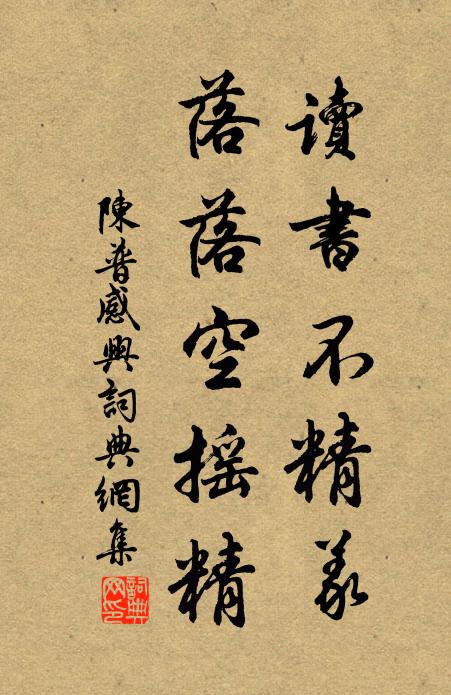 讀書不精義
落落空摇精
陳普感興詞典網集
詞典网印